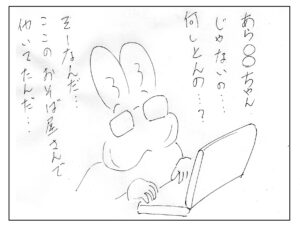 あら〇〇ちゃん
じゃないの…
何しとんの…？
そーなんだ…
ここのおそば屋さんで
働いてたんだ…